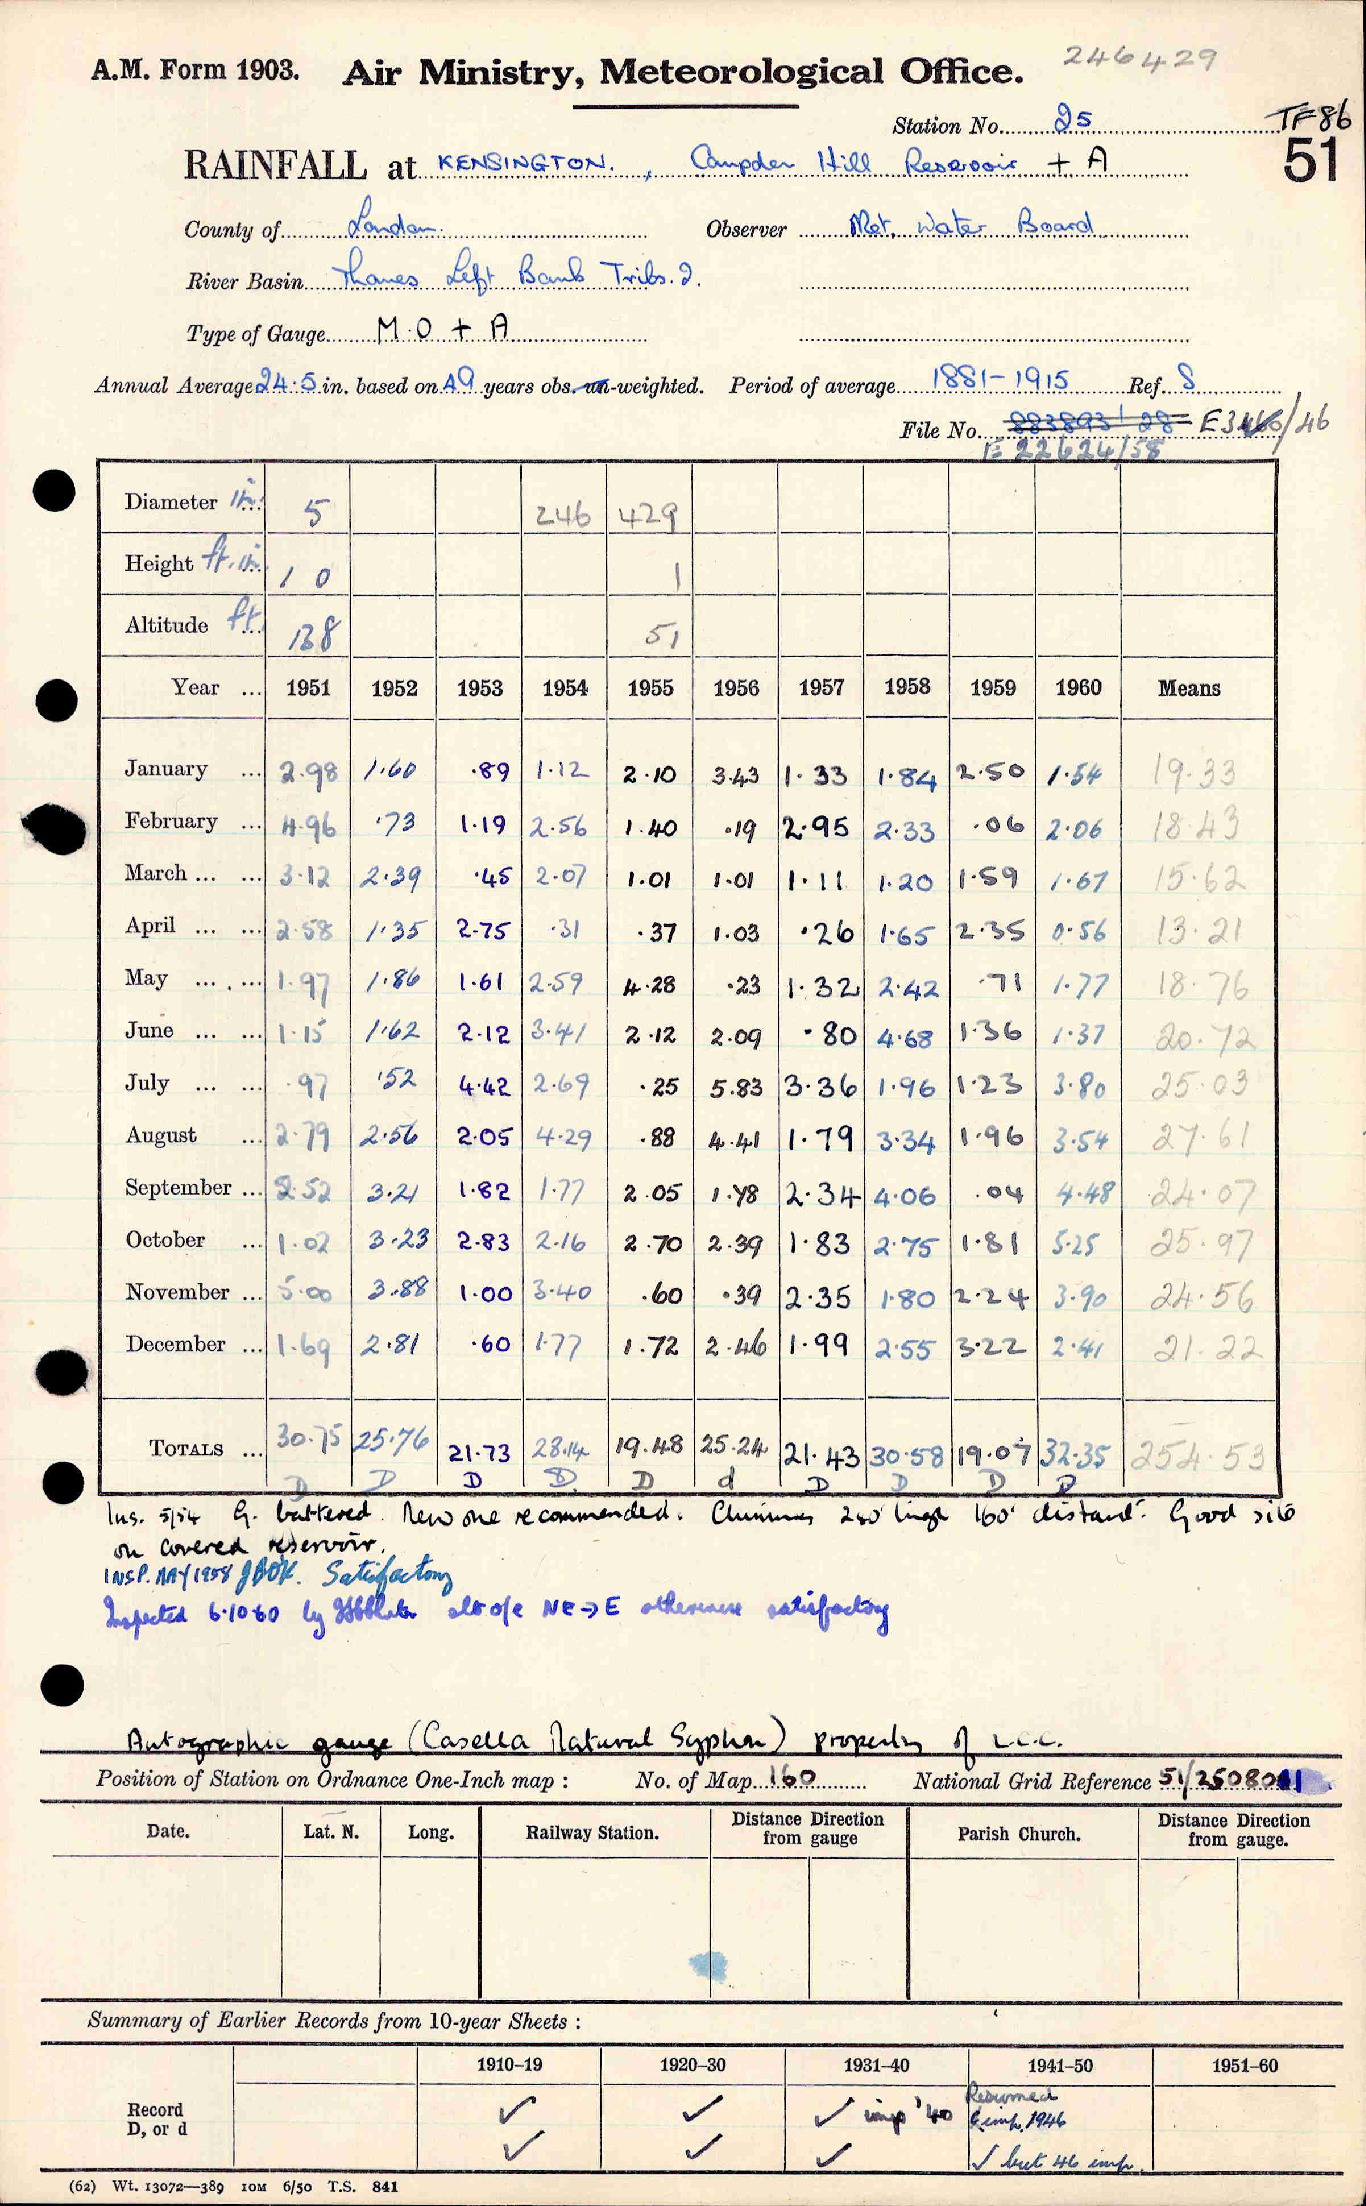 246429
A.M. Form 1903. Air Ministry, Meteorological Office.
Station No. 25 TF86
RAINFALL at KENSINGTON. , Campden Hill Reservoir + A 51
County of London. Observer Met. Water Board
River Basin Thames Left Bank Tribs. 2.
Type of Gauge M.O + A
Annual Average 24.5 in. based on 49 years obs. un-weighted. Period of average 1881-1915 Ref. S
File No. 883893/28 E3460/46
E 22624/58
Diameter in. 5 246 429
Height ft. in. 1 0 1
Altitude ft. 138 51
Year ... 1951 1952 1953 1954 1955 1956 1957 1958 1959 1960 Means
January ... 2.98 1.60 .89 1.12 2.10 3.43 1.33 1.84 2.50 1.54 19.33
February ... 4.96 .73 1.19 2.56 1.40 .19 2.95 2.33 .06 2.06 18.43
March ... ... 3.12 2.39 .45 2.07 1.01 1.01 1.11 1.20 1.59 1.67 15.62
April ... ... 2.58 1.35 2.75 .31 .37 1.03 .26 1.65 2.35 0.56 13.21
May ... ... 1.97 1.86 1.61 2.59 4.28 .23 1.32 2.42 .71 1.77 18.76
June ... ... 1.15 1.62 2.12 3.41 2.12 2.09 .80 4.68 1.36 1.37 20.72
July ... ... .97 .52 4.42 2.69 .25 5.83 3.36 1.96 1.23 3.80 25.03
August ... 2.79 2.56 2.05 4.29 .88 4.41 1.79 3.34 1.96 3.54 27.61
September ... 2.52 3.21 1.82 1.77 2.05 1.78 2.34 4.06 .04 4.48 24.07
October ... 1.02 3.23 2.83 2.16 2.70 2.39 1.83 2.75 1.81 5.25 25.97
November ... 5.00 3.88 1.00 3.40 .60 .39 2.35 1.80 2.24 3.90 24.56
December ... 1.69 2.81 .60 1.77 1.72 2.46 1.99 2.55 3.22 2.41 21.22
TOTALS ... 30.75 25.76 21.73 28.14 19.48 25.24 21.43 30.58 19.07 32.35 254.53
D D D D D d D D D D
Ins. 5/54 G. battered. New one recommended. Chimney 240' high 160' distant. Good site
on covered reservoir.
INSP. MAY 1958 Satisfactory
Inspected 6.10.60 by alt o/c NE→E otherwise satisfactory
Autographic gauge (Casella Natural Syphon) property of L.C.C.
Position of Station on Ordnance One-Inch map : No. of Map 160 National Grid Reference 51/250801
Date. Lat. N. Long. Railway Station. Distance Direction from gauge Parish Church. Distance Direction from gauge.
Summary of Earlier Records from 10-year Sheets :
1910-19 1920-30 1931-40 1941-50 1951-60
Record ✓ ✓ ✓ imp '40 Resumed
D, or d & imp. 1946
✓ ✓ ✓ ✓ but 46 imp.
(62) Wt. 13072—389 10M 6/50 T.S. 841